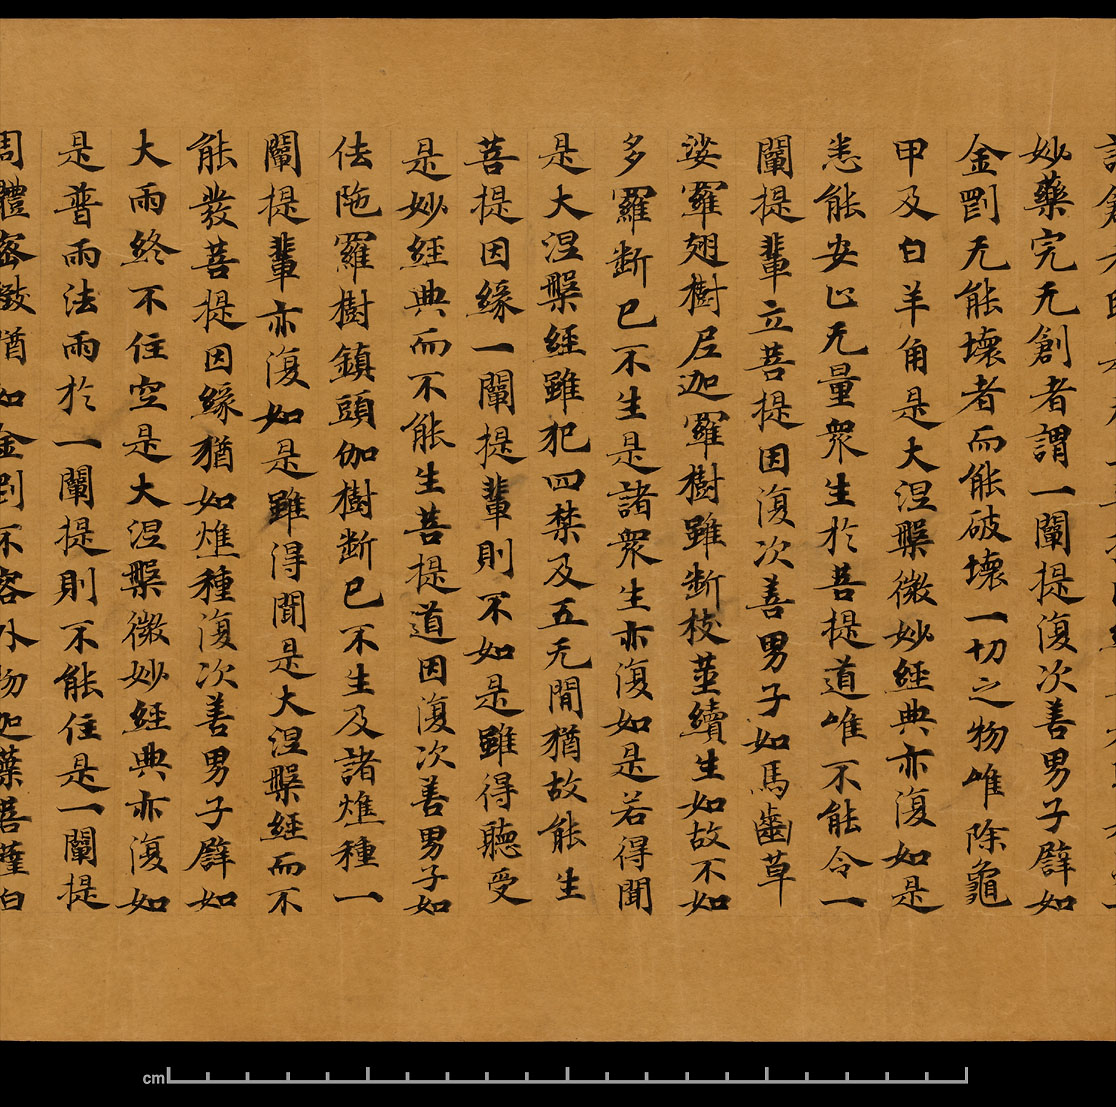 妙藥完无創者謂一闡提復次善男子譬如
金剛无能壞者而能破壞一切之物唯除龜
甲及白羊角是大涅槃微妙經典亦復如是
悉能安止无量衆生於菩提道唯不能令一
闡提輩立菩提因復次善男子如馬齒草
娑羅翅樹尼迦羅樹雖斷枝莖續生如故不如
多羅斷已不生是諸衆生亦復如是若得聞
是大涅槃經雖犯四禁及五无間猶故能生
菩提因緣一闡提輩則不如是雖得聽受
是妙經典而不能生菩提道因復次善男子如
佉陁羅樹鎮頭伽樹斷已不生及諸燋種一
闡提輩亦復如是雖得聞是大涅槃經而不
能發菩提因緣猶如燋種復次善男子譬如
大雨終不住空是大涅槃微妙經典亦復如
是普雨法雨於一闡提則不能住是一闡提
周體密緻猶如金剛不容外物迦葉菩薩白